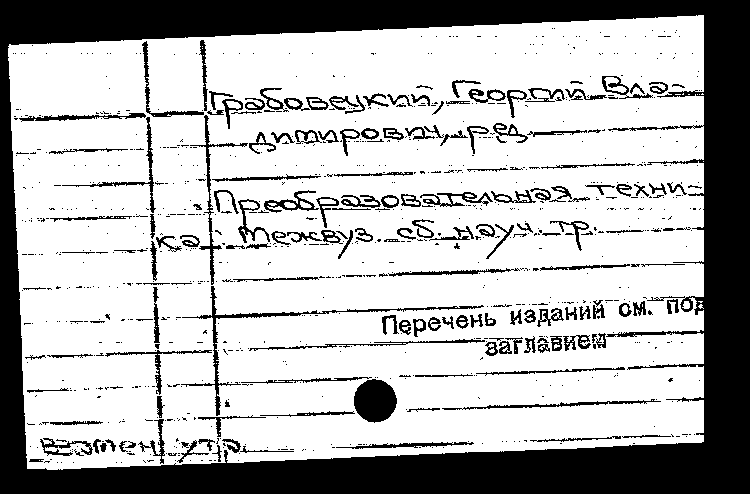 Грабовецкий, Георгий Вла-
димирович, ред.
Преобразовательная техни-
ка: Межвуз. сб. науч. тр.
Перечень изданий см. под
заглавием
взамен утр.